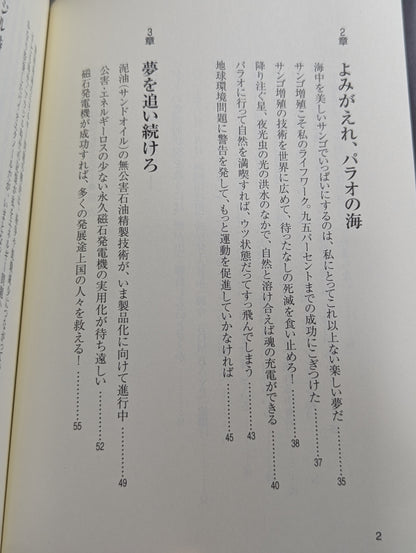 2章
よみがえれ、パラオの海
海中を美しいサンゴでいっぱいにするのは、私にとってこれ以上ない楽しい夢だ……… 35
サンゴ増殖こそ私のライフワーク。九五パーセントまでの成功にこぎつけた……… 37
サンゴ増殖の技術を世界に広めて、待ったなしの死滅を食い止めろ!……… 38
降り注ぐ星、夜光虫の光の洪水のなかで、自然と溶け合えば魂の充電ができる……… 40
パラオに行って自然を満喫すれば、ウツ状態だってすっ飛んでしまう……… 43
地球環境問題に警告を発して、もっと運動を促進していかなければ……… 45
3章
夢を追い続けろ
泥油(サンドオイル)の無公害石油精製技術が、いま製品化に向けて進行中……… 49
公害・エネルギーロスの少ない永久磁石発電機の実用化が待ち遠しい……… 52
磁石発電機が成功すれば、多くの発展途上国の人々を救える!……… 55
2